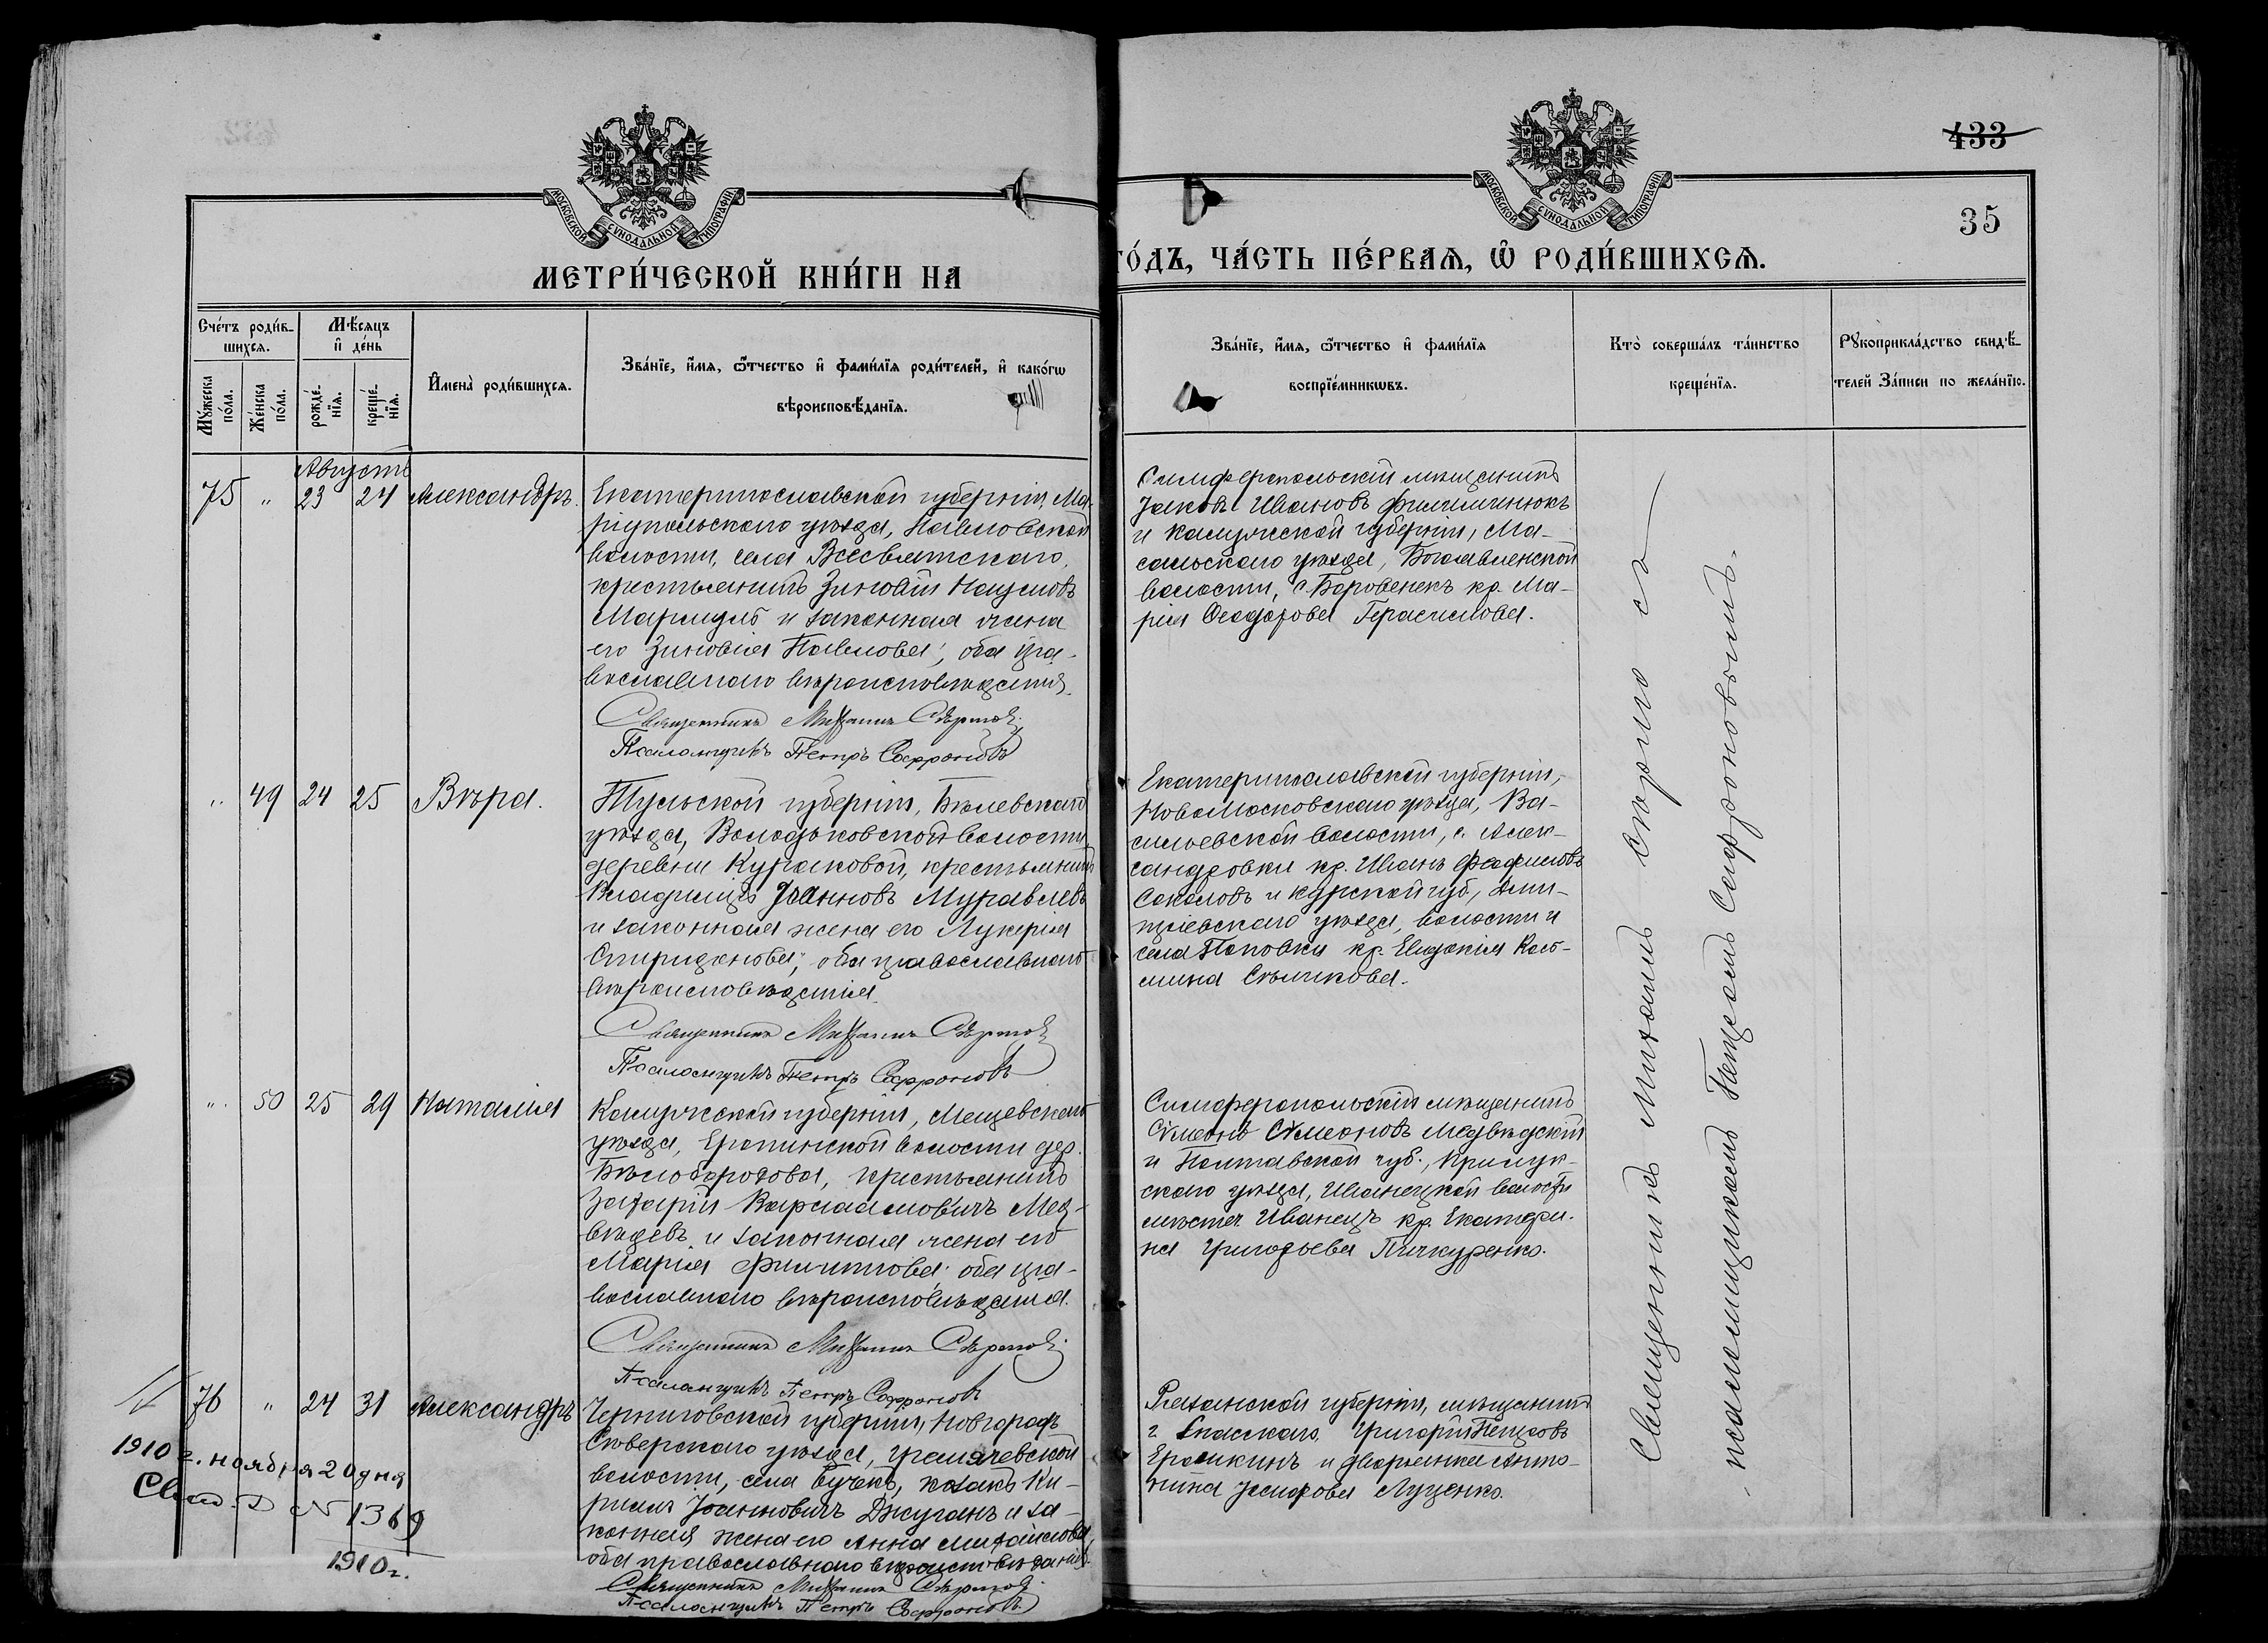 433
35
МОСКОВСКОЙ СѴНОДАЛЬНОЙ ТИПОГРАФІИ
МОСКОВСКОЙ СѴНОДАЛЬНОЙ ТИПОГРАФІИ
МЕТРИ́ЧЕСКОЙ КНИ́ГИ НА
ГО́ДЪ, ЧА́СТЬ ПЕ́РВАЯ, Ѽ РОДИ́ВШИХСЯ.
Сче́тъ роди́в-
шихся.
Мѣ́сяцъ
и де́нь
Мꙋ́жеска
по́ла.
Же́нска
по́ла.
рожде́-
нїя.
креще́-
нїя.
Имена̀ роди́вшихся.
Зва́нїе, и́мя, ѻ́тчество и фами́лїя роди́телей, и како́гѡ
вѣроисповѣ́данїя.
Зва́нїе, и́мя, ѻ́тчество и фами́лїя
воспрїе́мникѡвъ.
Кто̀ соверша́лъ та́инство
креще́нїя.
Рꙋкоприкла́дство свидѣ́-
телей за́писи по жела́нїю.
Августъ
75 " 23 24 Александръ.
Екатеринославской губерніи, Ма-
ріупольскаго уѣзда, Павловской
волости, села Всесвятскаго,
крестьянинъ Зиновій Наумовъ
и законная жена
его Зиновія Павлова; оба пра-
вославнаго вѣроисповѣданія.
Священникъ Михаилъ
Псаломщикъ Петръ Сафроновъ
Симферопольскій мѣщанинъ
Іаковъ Ивановъ Филимонюкъ
и Калужской губерніи, Ма-
сальскаго уѣзда, Богоявленской
волости, с. Боровенекъ кр. Ма-
рія Ѳеодорова Герасимова.
" 49 24 25 Вѣра.
Тульской губерніи, Бѣлевскаго
уѣзда, Володьковской волости,
деревни Кураковой, крестьянинъ
Владиміръ Іоанновъ Муравлевъ
и законная жена его Лукерія
Спиридонова; оба православнаго
вѣроисповѣданія.
Священникъ Михаилъ
Псаломщикъ Петръ Сафроновъ
Екатеринославской губерніи,
Новомосковскаго уѣзда, Ва-
сильевской волости, с. Алек-
сандровки кр. Иванъ
Соколовъ и Курской губ., Дми-
тріевскаго уѣзда, волости и
села Поповки кр. Евдокія Козь-
мина
" 50 25 29 Наталія
Калужской губерніи, Мещевскаго
уѣзда, Еропинской волости дер.
Бѣлобородова, крестьянинъ
Захарій Варлаамовичъ Мед-
вѣдевъ и законная жена его
Марія Филиппова; оба пра-
вославнаго вѣроисповѣданія.
Священникъ Михаилъ
Псаломщикъ Петръ Сафроновъ
Симферопольскій мѣщанинъ
Сѵмеонъ Сѵмеоновъ Медвѣдскій
и Полтавской губ., Прилук-
скаго уѣзда, Иваницкой волости
мѣстеч. Иваницъ кр. Екатери-
на Григорьева Пичкуренко.
76 " 24 31 Александръ
Черниговской губерніи, Новгородъ
Сѣверскаго уѣзда, Гремячевской
волости, села Бучекъ, козакъ Ки-
риллъ Іоанновичъ Джуганъ и за-
конная жена его Анна Михайлова,
оба православнаго вѣроисповѣданія.
Священникъ Михаилъ
Псаломщикъ Петръ Сафроновъ
Рязанской губерніи, мѣщанинъ
г. Спасскаго Григорій Петровъ
Ерошкинъ и дворянка Анто-
нина Іосифова Луценко.
1910 г. ноября 20 дня
Свид. N 1369
1910 г.
Священникъ Михаилъ съ
псаломщикомъ Петромъ Сафроновымъ.